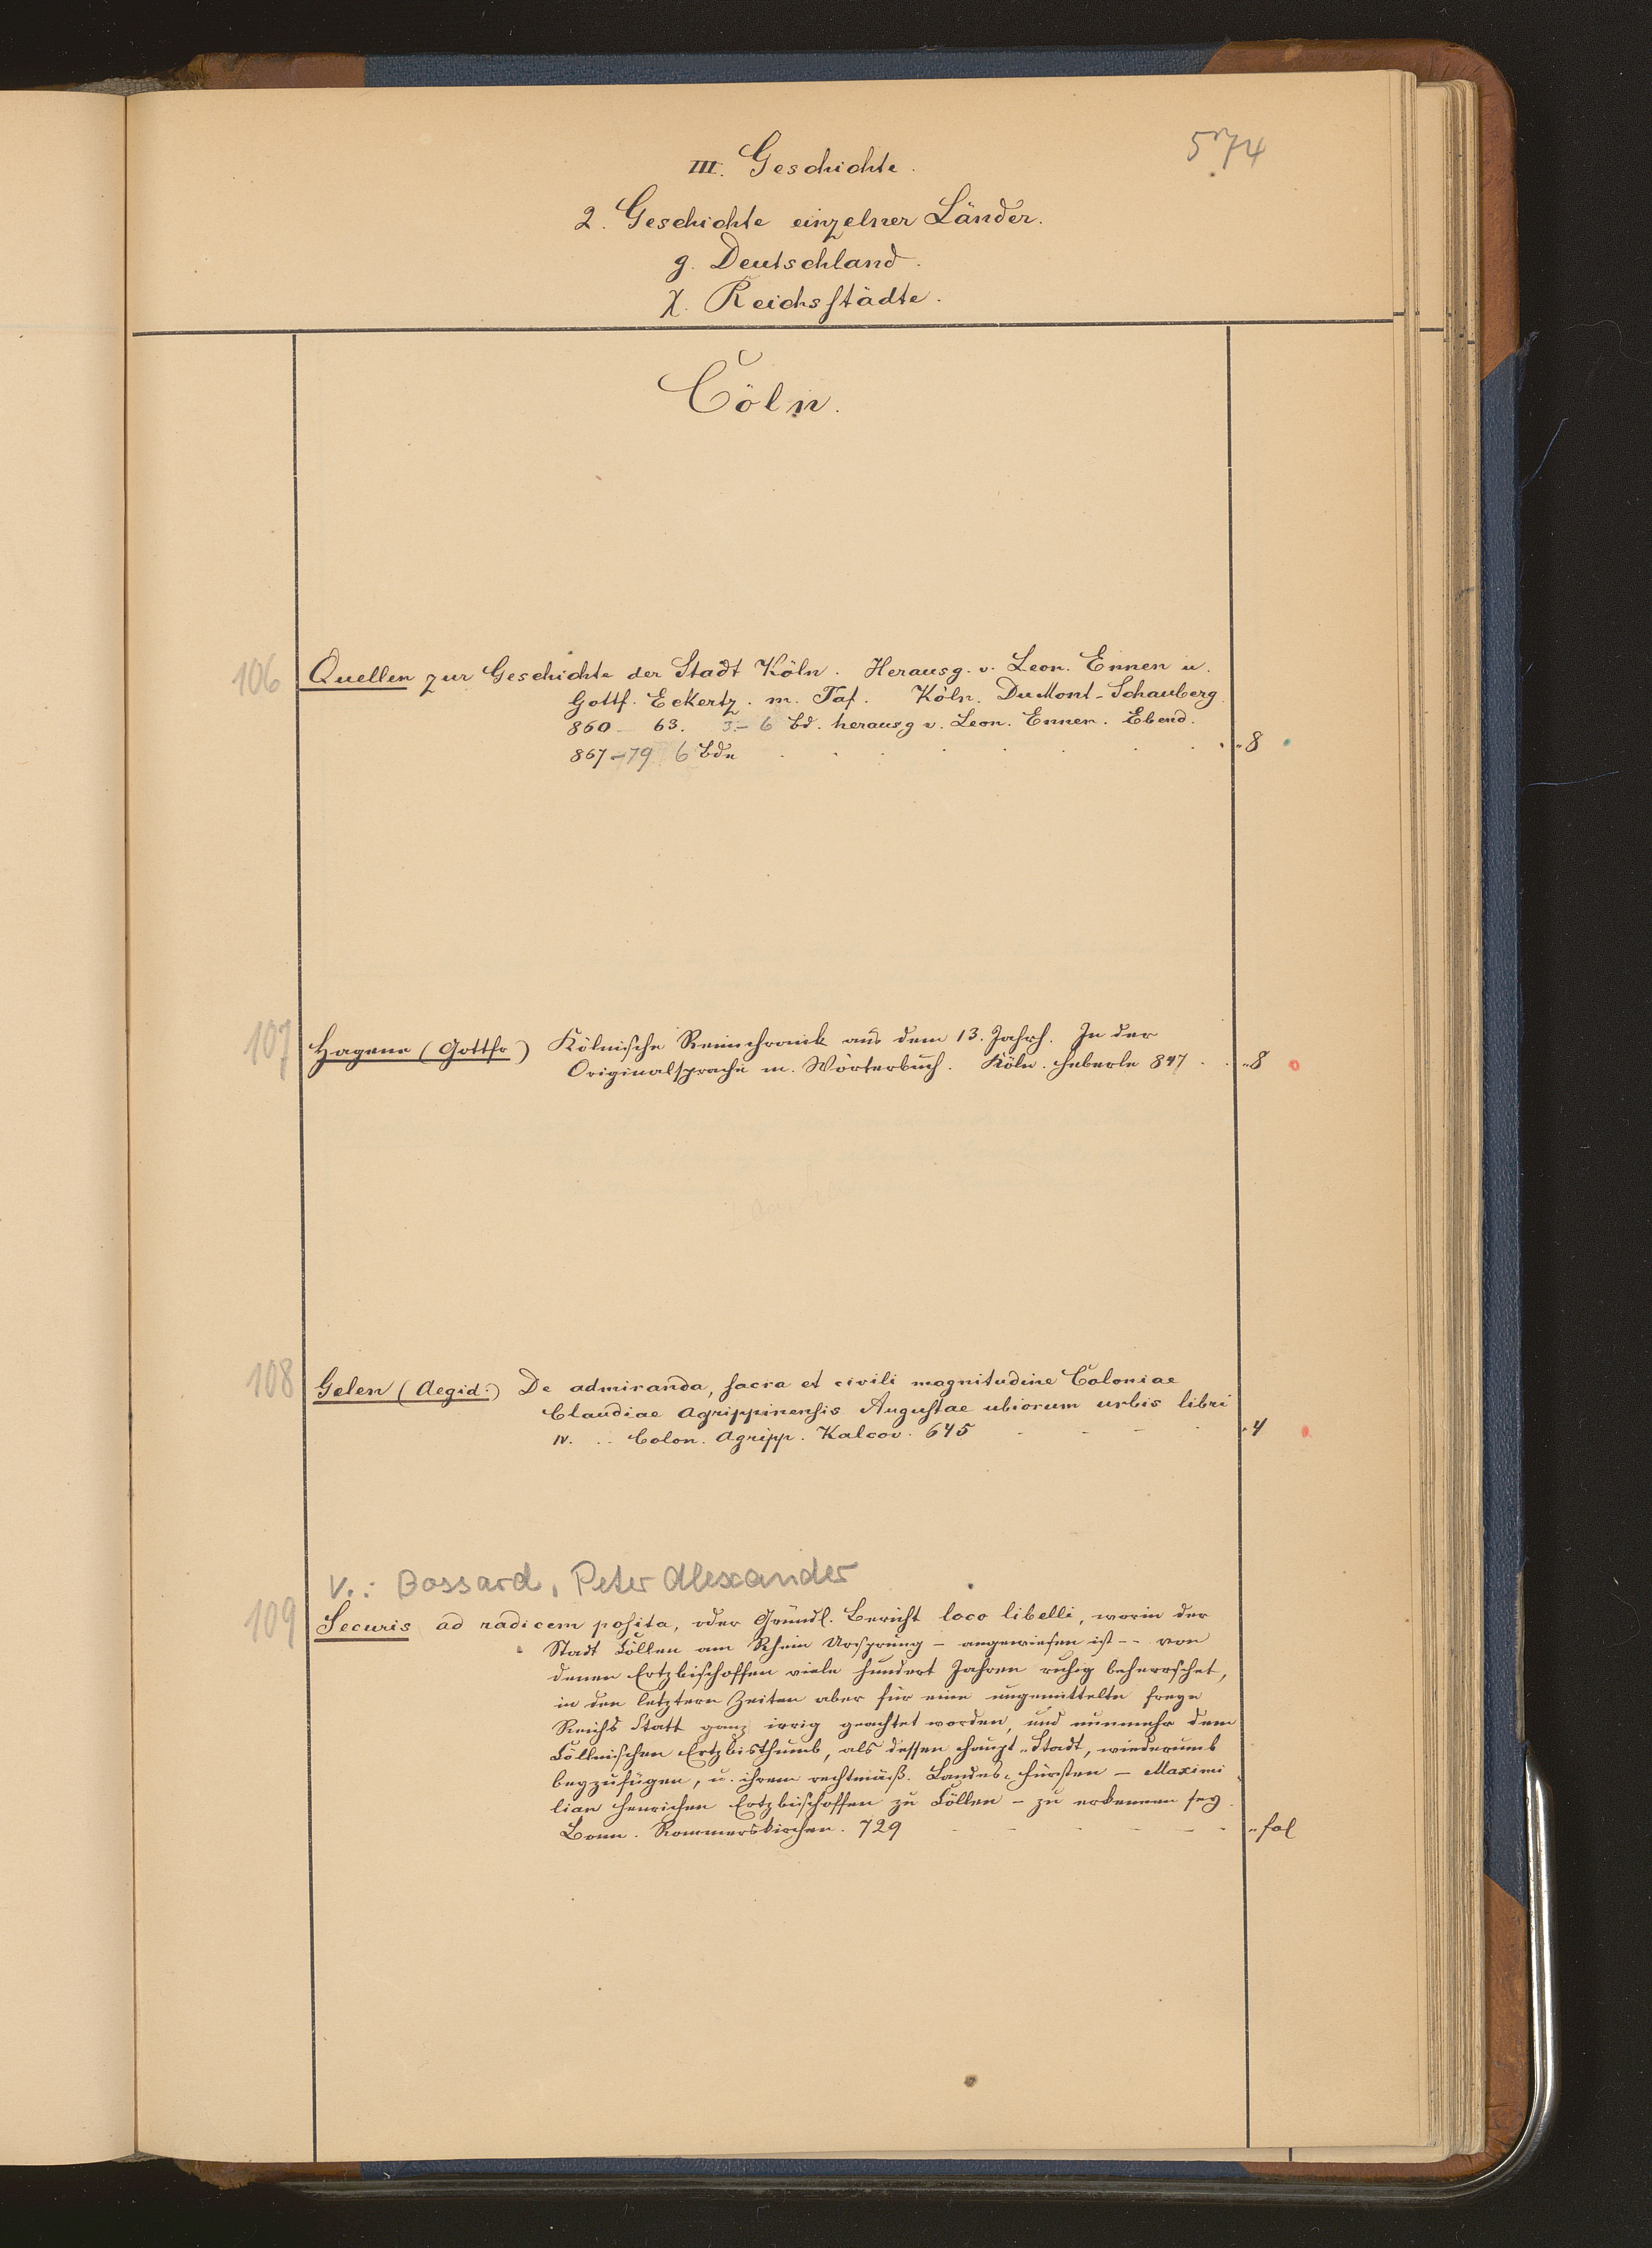 574
III. Geschichte.
2. Geschichte einzelner Länder.
g. Deutschland.
χ. Reichsstädte.
Cöln.
106 Quellen zur Geschichte der Stadt Köln. Herausg. v. Leon. Ennen u.
Gottf. Eckertz. m. Taf. Köln. DuMont-Schauberg
860 - 63. 3 - 6 Bd. herausg v. Leon. Ennen. Ebend.
867-79 6 Bde 8
107 Hagene (Gottfr) Kölnische Reimchronik aus dem 13. Jahrh. In der
Originalsprache m. Wörterbuch. Köln. Heberle 847 8
108 Gelen (Aegid.) De admiranda, sacra et civili magnitudine Coloniae
Claudiae Agrippinensis Augustae ubiorum urbis libri
IV. Colon. Agripp. Kalcov. 645 4
V.: Bossard, Peter Alexander
109 Securis ad radicem posita, oder Gründl. Bericht loco libelli, worin der
Stadt Cöllen am Rhein Ursprung - angewiesen ist -- von
denen Ertzbischoffen viele hundert Jahren ruhig beherrschet,
in den letztern Zeiten aber für eine ungemittelte freye
Reichs Statt ganz irrig geachtet worden, und nunmehr dem
Cöllnischen Ertzbisthumb, als dessen Haupt-Stadt, wiederumb
beyzufügen, u. ihrem rechtmäß. Landes-Fürsten - Maximi
lian Henrichen Ertzbischoffen zu Cöllen - zu erkennen sey.
Bonn. Rommerskirchen. 729 fol